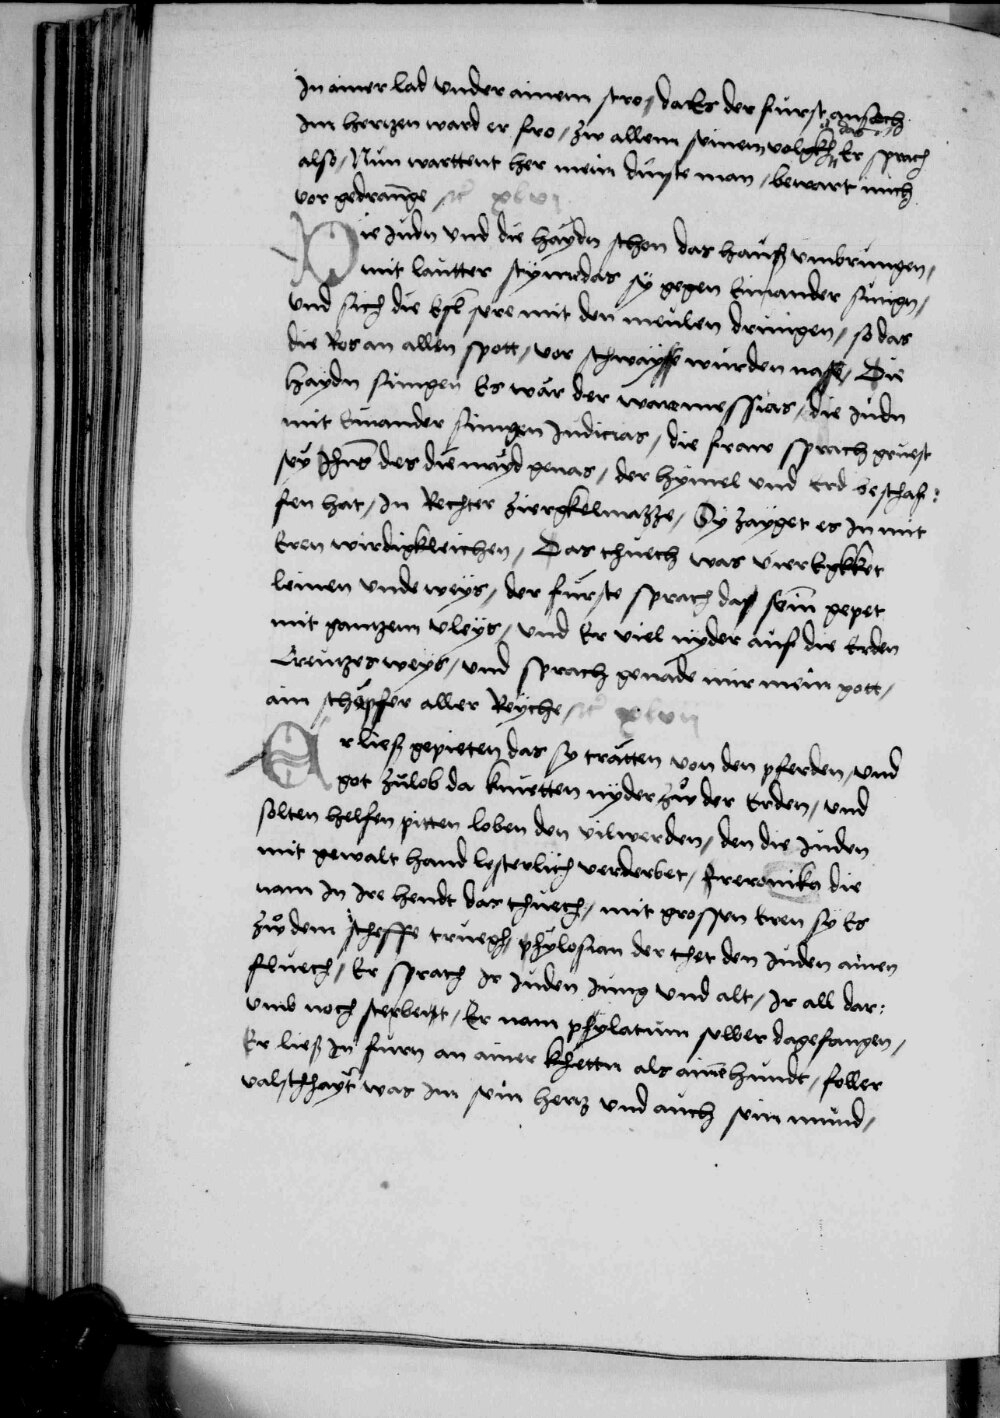 In ainer lad vnder ainem stro / da Es der furst ansach
Im hertzen ward er fro / zw allem seinem volgkh Er sprach
also / Nun warttent her mein dinste man / bewart mich
vor gedrannge xlvj
Die Judn vnd die haydn schon das hauß vmbrungen /
mit lautter stymm das sy gegen Einander sungn /
vnd sich die Esl sere mit den meulen drungen / so das
die Ros an allen spott / vor schwaysse wurden nass / Die
haydn sungen Es wär der ware messias / die Judn
mit Einander sungen Judicias / die fraw sprach gruest
sey Jhus des die mayd genas / der hymel vnd Erd beschaf:
fen hat / In Rechter Ziergkelmazze / Sy zayget es In mit
Eren wirdigkleichen / Das thuech was vierEgkket
leinen vnde weys / der furste sprach das sein gepet
mit gantzem vleys / vnd Er viel nyder auf die Erden
Creutzes weys / vnd sprach genade mir mein gott /
ain schepffer aller Reyche / xlvij
Er ließ gepieten das sy trätten von den pferden / vnd
got zulob da knietten nyder zw der Erden / vnd
solten helfen pitten loben den vilwerden / den die Juden
mit gewalt hand lesterlich verderbet / freronika die
nam In Ire hendt das thuech / mit grossen Eren sy Es
zw dem scheffe truegh / phylosian der thet den Juden ainen
fluech / Er sprach Ir Juden Jung vnd alt / Ir all dar:
vmb noch sterbent / Er nam pylatum selber da gefangen /
Er ließ In furn an ainer khettn als ainen hundt / foller
valschhayt was Im sein hertz vnd auch sein mund /